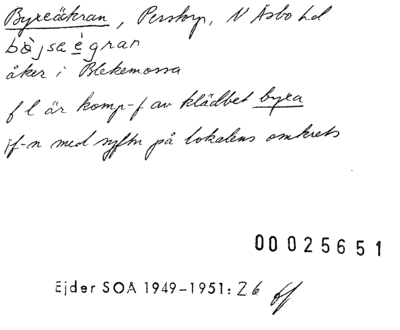 Byreäckran, Perstorp, N Åsbo hd
åker i Blekemossa
f l är komp-f av klädbet byra
jf-n med syftn på lokalens omkrets
00025651
Ejder SOA 1949-1951: 26